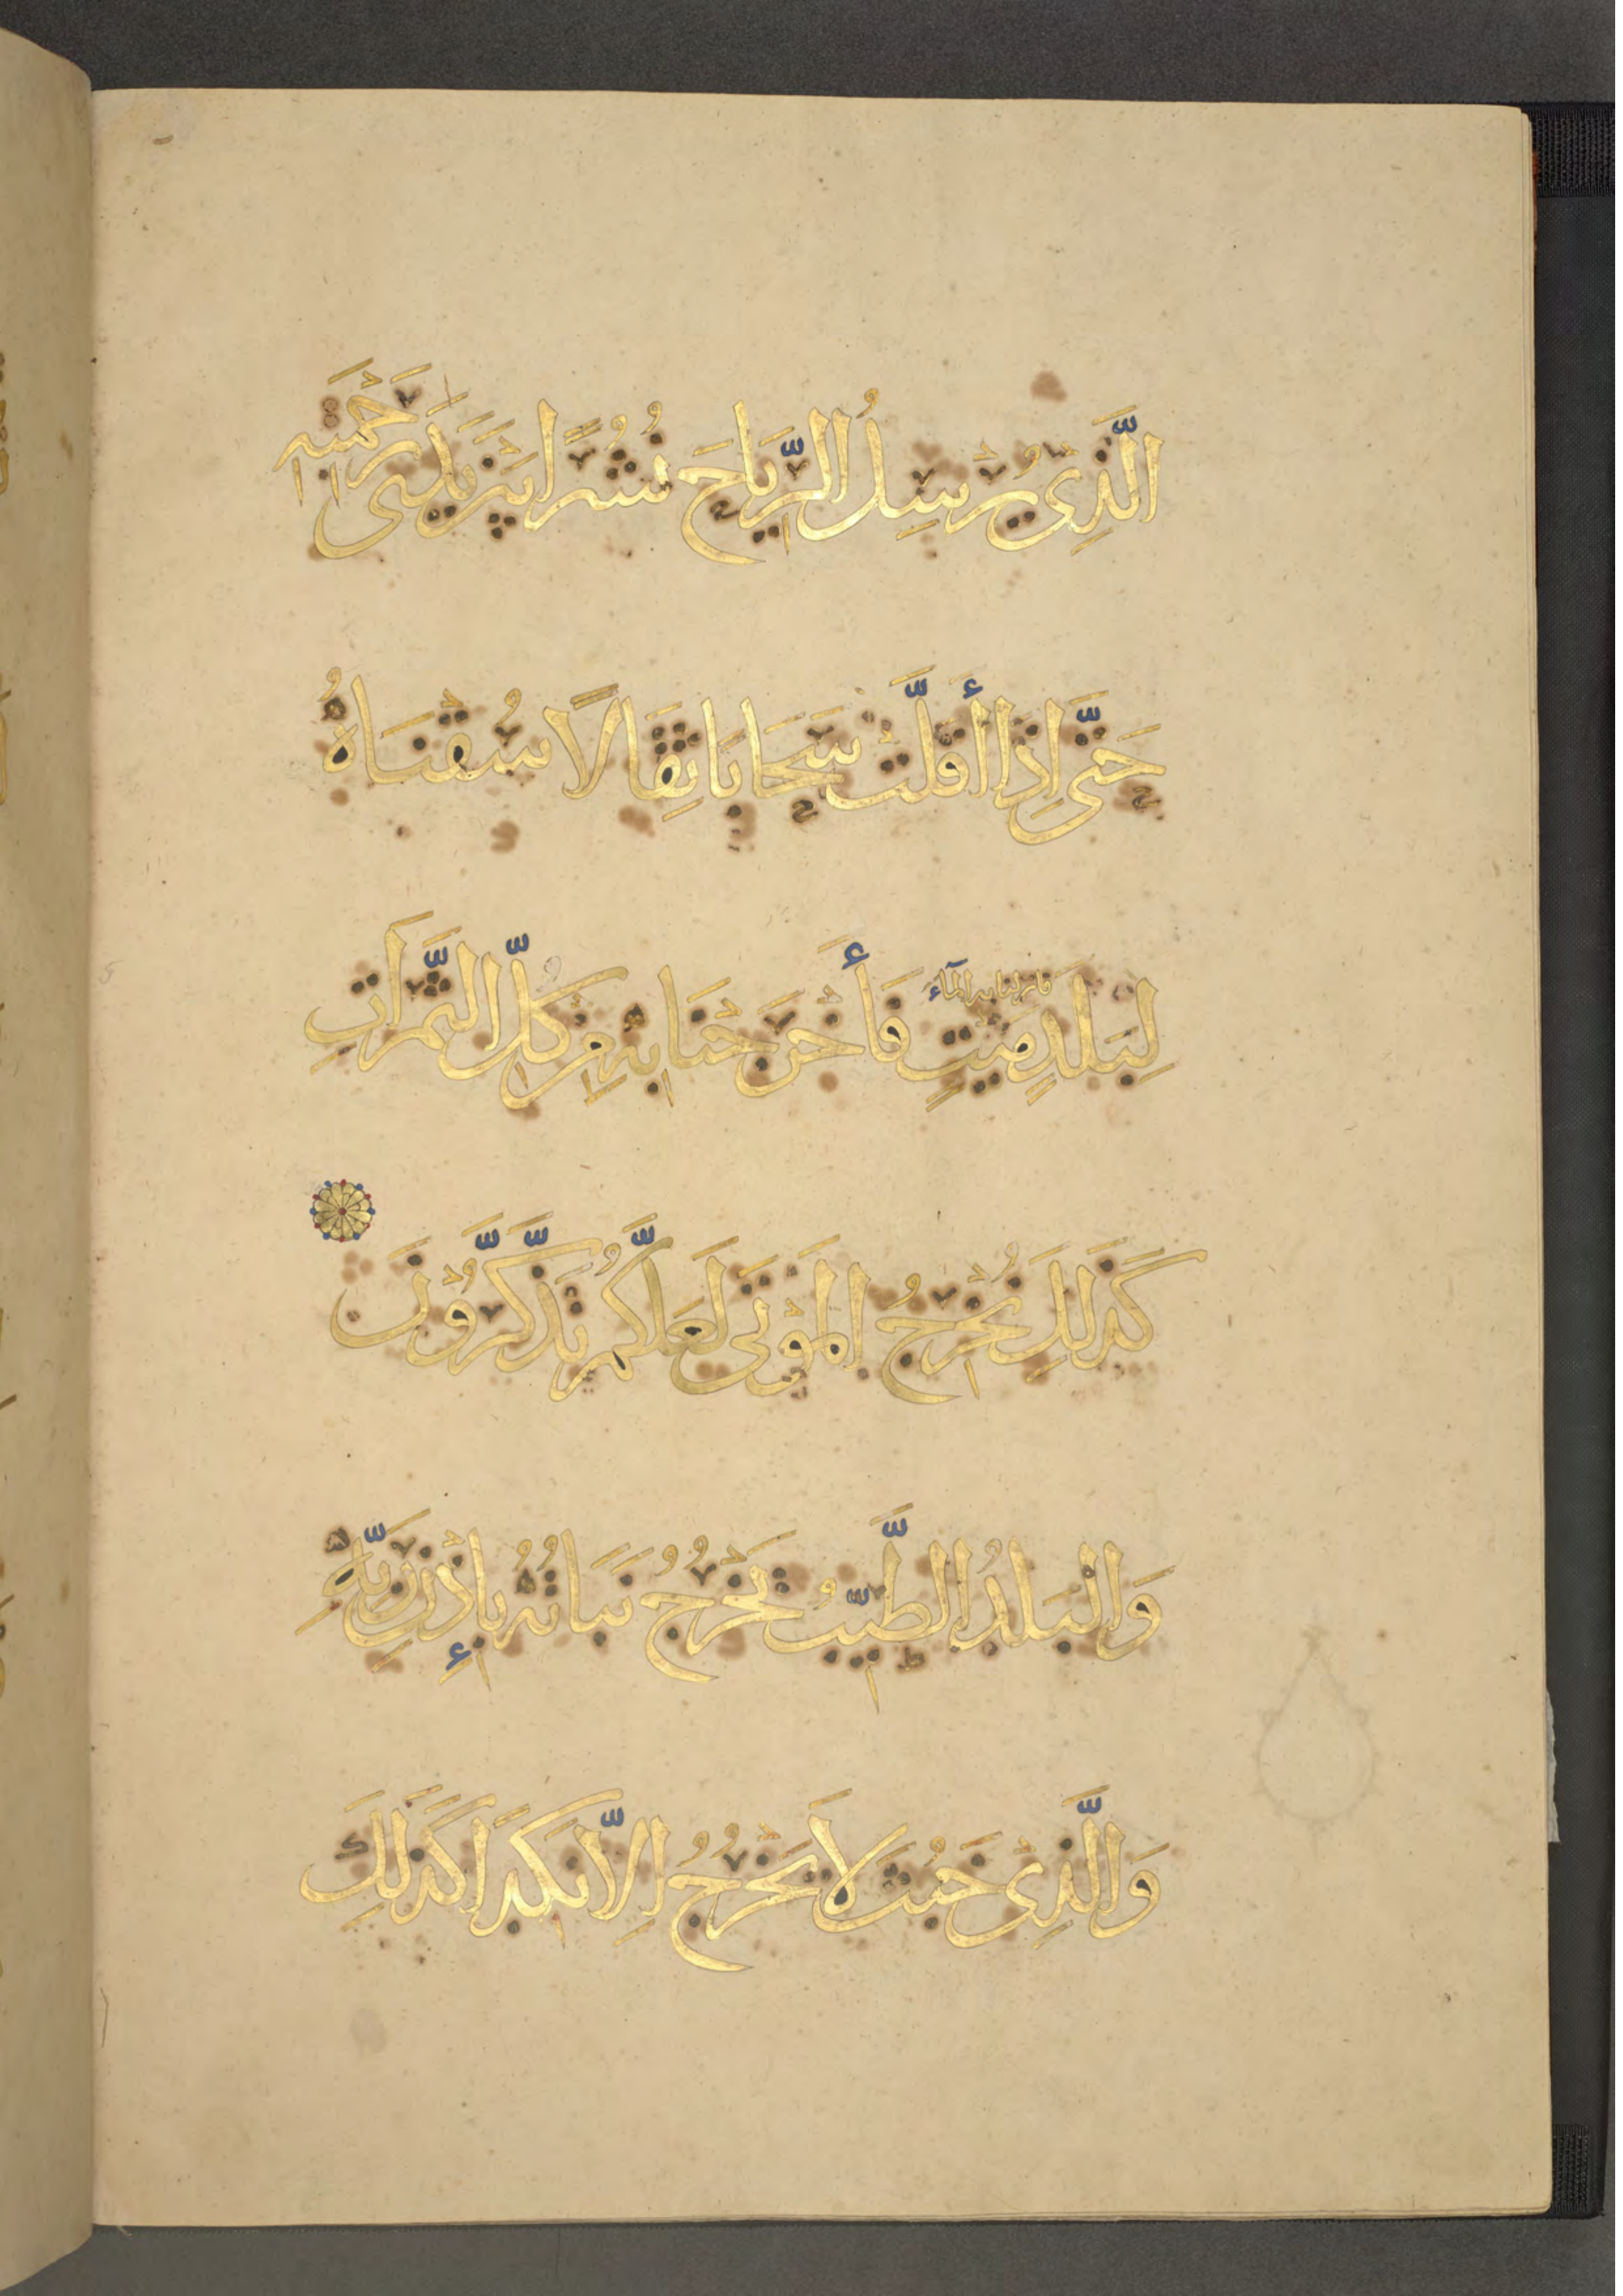 الَّذِى يُرْسِلُ الرِّيَاحَ نُشُرًا بَيْنَ يَدَىْ رَحْمَتِهِ
حَتَّى اِذَا أَقَلَّتْ سَحَابًا ثِقَالًا سُقْنَاهُ
فانزلنا به المآء
لِبَلَدٍ مَيْتٍ فَأَخْرَجْنَا بِهِ مِنْ كُلِّ الثَّمَرَاتِ
كَذَلِكَ نُخْرِجُ الْمَوْتَى لَعَلَّكُمْ تَذَّكَّرُونَ
وَالْبَلَدُ الطَّيِّبُ يَخْرُجُ نَبَاتُهُ بِإِذْنِ رَبِّهِ
وَالَّذِى خَبُثَ لَا يَخْرُجُ اِلَّا نَكِدًا كَذَلِكَ